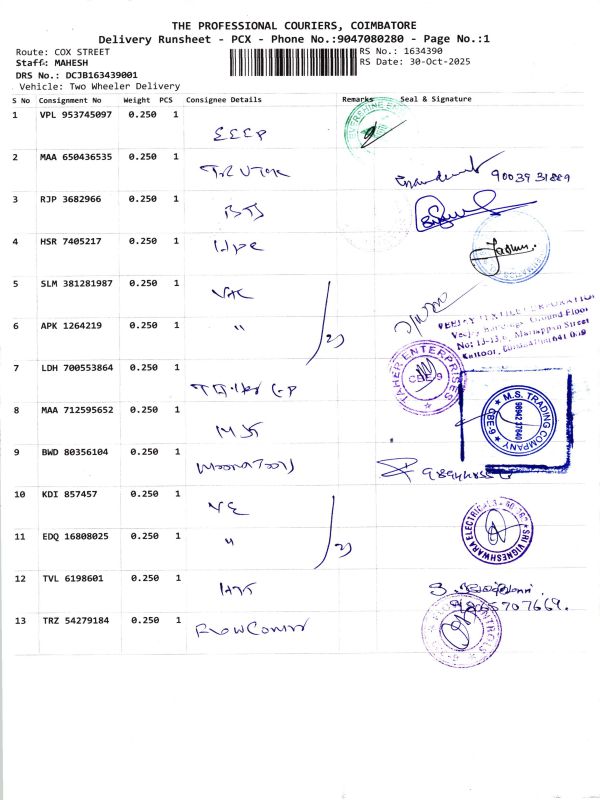 THE PROFESSIONAL COURIERS, COIMBATORE
Delivery Runsheet - PCX - Phone No.:9047080280 - Page No.:1
Route: COX STREET
RS No.: 1634390
Staff: MAHESH
RS Date: 30-Oct-2025
DRS No.: DCJB163439001
Vehicle: Two Wheeler Delivery
S No Consignment No Weight PCS Consignee Details Remarks Seal & Signature
1 VPL 953745097 0.250 1 EEEP
2 MAA 650436535 0.250 1
90039 31889
3 RJP 3682966 0.250 1 BTS
4 HSR 7405217 0.250 1 Hpe
5 SLM 381281987 0.250 1
6 APK 1264219 0.250 1 "
VEEJAY TEXTILE CORPORATION
Veejay Buildings, Ground Floor
No: 13-13,6, Mariappan Street
Kattoor, Coimbatore-641 009
7 LDH 700553864 0.250 1
TAHER ENTERPRISES
CBE-9
8 MAA 712595652 0.250 1
M.S. TRADING COMPANY
98942 37640
CBE-9
9 BWD 80356104 0.250 1
10 KDI 857457 0.250 1 VE
11 EDQ 16808025 0.250 1 "
SRI VIGNESHWARA ELECTRICALS
12 TVL 6198601 0.250 1
9865707669.
13 TRZ 54279184 0.250 1 FlowControl